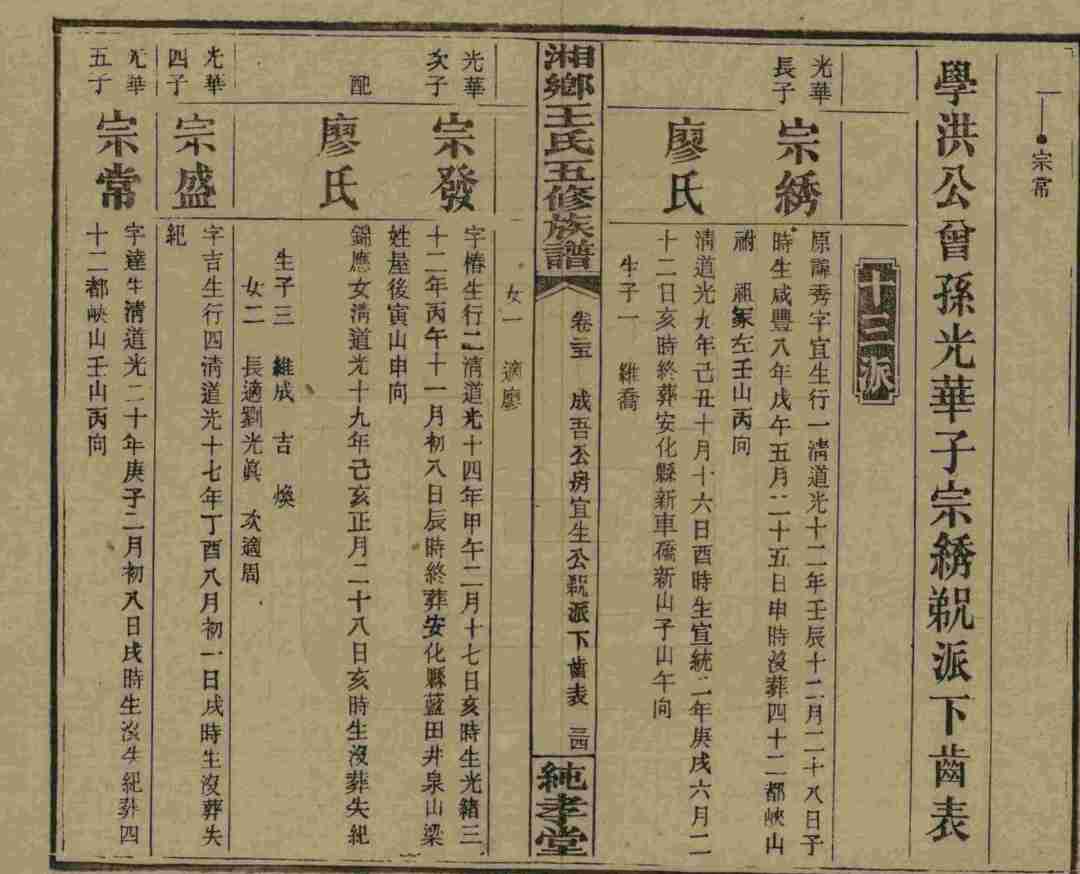 宗常
學洪公曾孫光華子宗綉覡派下齒表
十三派
光華
長子
宗綉
原諱秀字宜生行一清道光十二年壬辰十二月二十八日子
時生咸豐八年戊午五月二十五日申時沒葬四十二都峽山
祔祖冢左壬山丙向
廖氏
清道光九年己丑十月十六日酉時生宣統二年庚戌六月二
十二日亥時終葬安化縣新車礄新山子山午向
生子一 維喬
女一 適廖
湘鄉王氏五修族譜
卷 成吾公房宜生公覡派下齒表
純孝堂
光華
次子
宗發
字椿生行二清道光十四年甲午二月十七日亥時生光緒三
十二年丙午十一月初八日辰時終葬安化縣藍田井泉山梁
姓屋後寅山申向
配
廖氏
錦應女清道光十九年己亥正月二十八日亥時生沒葬失紀
生子三 維成 吉 煥
女二 長適劉光眞 次適周
光華
四子
宗盛
字吉生行四清道光十七年丁酉八月初一日戌時生沒葬失
紀
光華
五子
宗常
字達生清道光二十年庚子二月初八日戌時生沒失紀葬四
十二都峽山壬山丙向